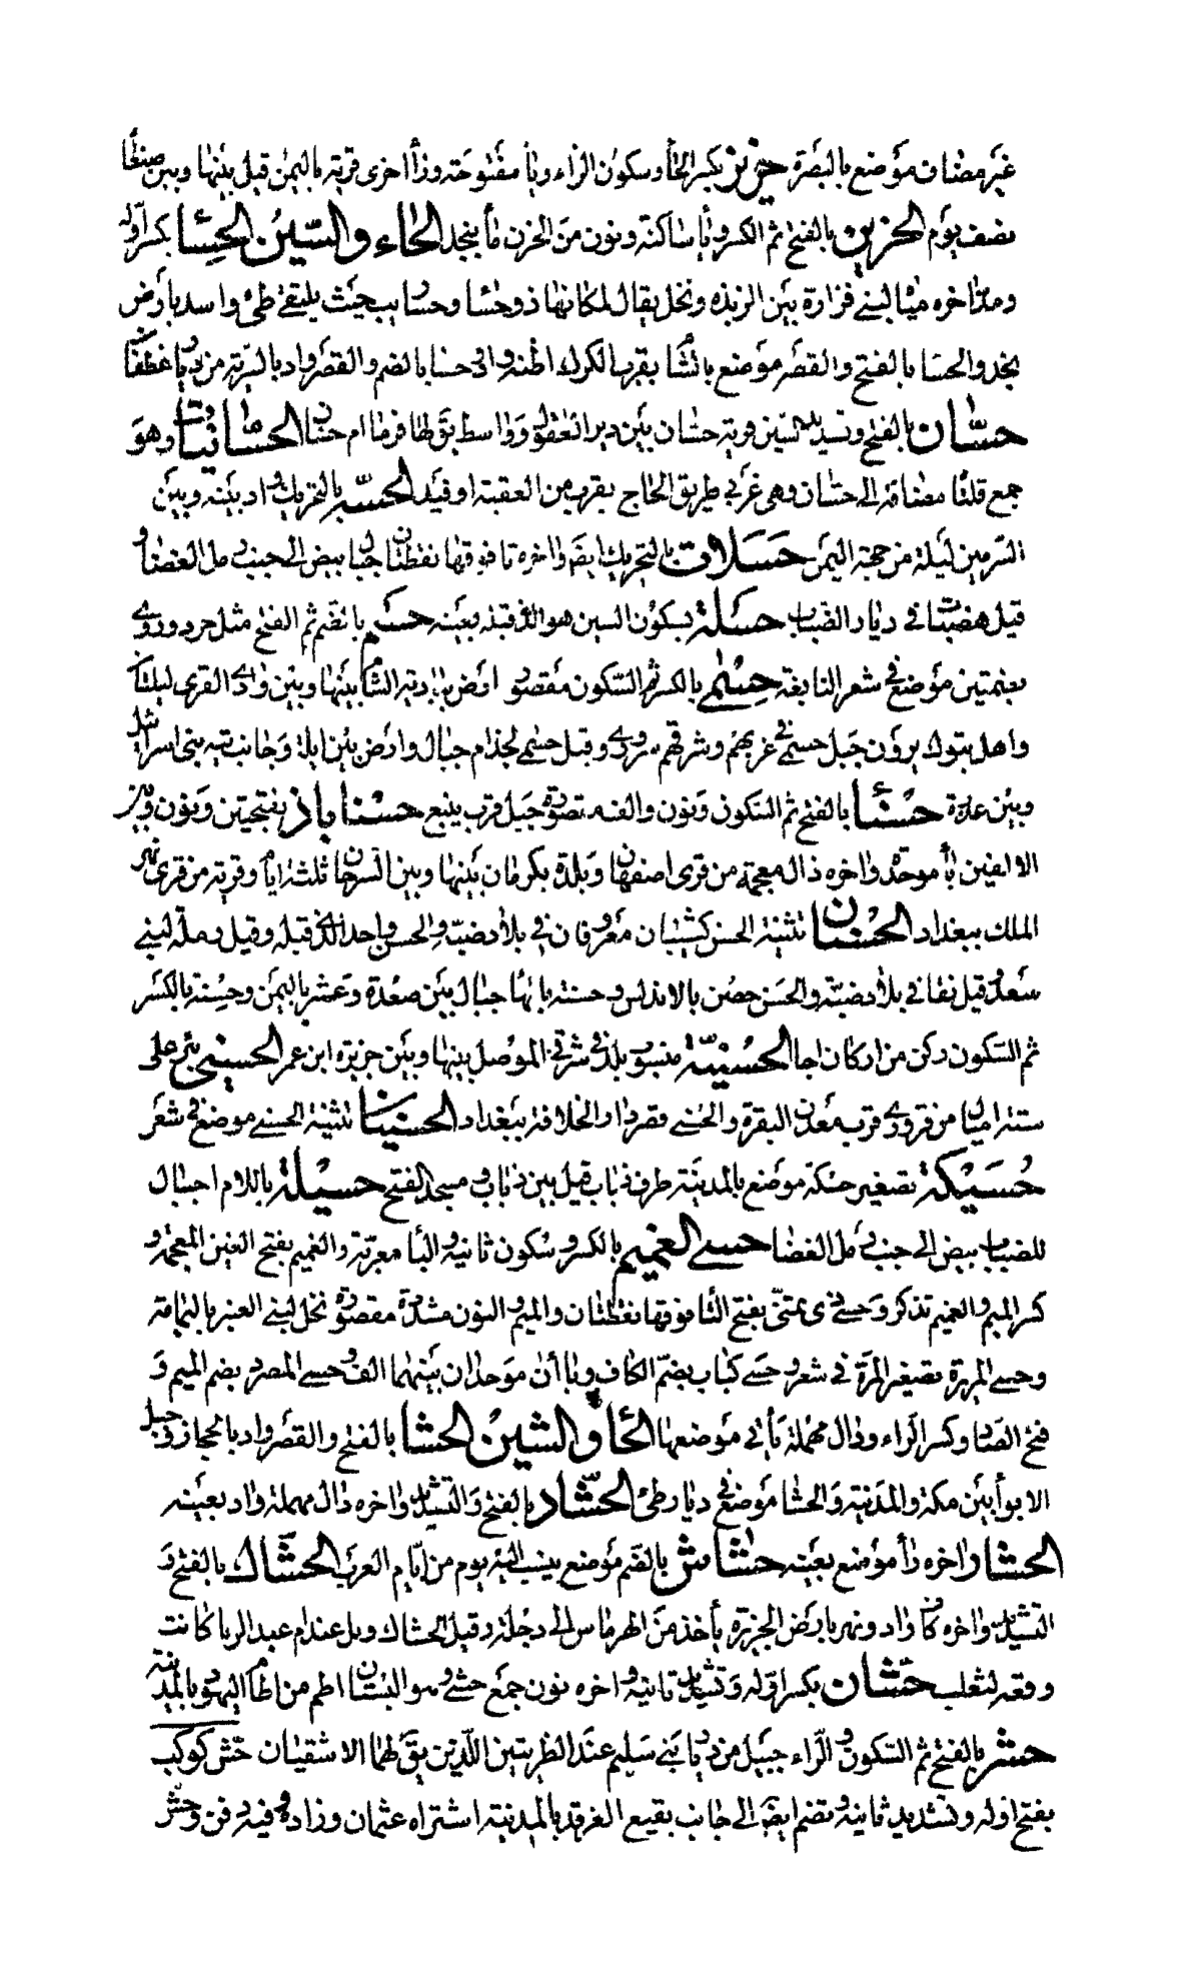 غير مضاف موضع بالبصرة حزيز بكسر الحاء وسكون الزاء وياء مفتوحة وزاء اخرى قرية باليمن قيل بينها وبين صنعا
نصف يوم الحزين بالفتح ثم الكسر وياء ساكنة ونون من الحزن ماء بنجد الحاء والسين الحسا بكسر اوله
ومد اخره مياه لبني فزارة بين الربذه ونخل يقال لمكانها ذو حسا وحسا حيث يلتقي طئ واسد بارض
نجد والحسا بالفتح والقصر موضع بالشأم بقرب الكرك وحسا بالضم والقصر واد بالسرية من ديار غطفان
حسان بالفتح وتشديد السين قرية حسان بين دير العاقول وواسط يق لها قرما ام حسان الحسانيات وهو
جمع قلتا مضافة الى حسان وهى غربي طريق الحاج بقرب من العقبة او فيد الحسبه بالتحريك واد بينه وبين
السرين ليلة من جهة اليمن حسلات بالتحريك ايضا واخره تا فوقها نقطتان جبال بيض الى جنب رمل الغضا و
قيل هضبات في ديار الضباب حسلة بسكون السين هو الذي قبله بعينه حسم بالضم ثم الفتح مثل جرد وروي
بضمتين موضع في شعر النابغة حسمى بالكسر ثم السكون مقصور ارض ببادية الشام بينها وبين وادي القرى ليلتان
واهل تبوك يرون جبل حسمى في غربهم وشرقيهم شروري وقيل حسمى لجذام جبال وارض بين ايلة وجانب تيه بنى اسرائيل
وبين عذرة حسنا بالفتح ثم السكون ونون والف مقصورة جبل قرب ينبع حسناباذ بفتحتين ونون وبين
الالفين باء موحدة واخره ذال معجمة من قرى اصفهان وبلدة بكرمان بينها وبين السرجان ثلثة ايام وقرية من قرى نهر
الملك ببغداد الحسنان تثنية الحسن كثيبان معروفان في بلاد ضبة والحسن واحد الذي قبله وقيل رملة لبني
سعد وقيل نقا في بلاد ضبة والحسن حصن بالاندلس وحسنة بالهاء جبال بين صعدة وعثر باليمن وحسنة بالكسر
ثم السكون ركن من اركان اجا الحسنية منسوب بلد في شرقي الموصل بينها وبين جزيرة ابن عمر الحسني بئر على
ستة اميال من قروري قرب معدن البقرة والحسني قصر دار الخلافة ببغداد الحسنيان تثنية الحسني موضع في شعر
حسيكة تصغير حسكة موضع بالمدينة طرف ذباب قيل بين ذباب ومسجد الفتح حسيلة باللام اجبال
للضباب بيض الى جنب رمل الغضا حسي الغميم بالكسر وسكون ثانيه والياء معربة والغميم بفتح الغين المعجمة و
كسر الميم والغميم تذكر وحسي ذى تمنّى بفتح التا فوقها نقطتان والميم والنون مشددة مقصورة نخل لبني العنبر باليمامة
وحسي المريرة تصغير المرة في شعر وحسي كباب بضم الكاف وباان موحدان بينهما الف وحسي المصرد بضم الميم و
فتح الصاد وكسر الراء ودال مهملة يأتي موضعها الحاء والشين الحشا بالفتح والقصر واد بالحجاز وجبل
الابواء بين مكة والمدينة والحشا موضع في ديار طئ الحشاد بالفتح والتشديد واخره دال مهملة واد بعينه
الحشار واخره راء موضع بعينه حشاش بالضم موضع ينسب اليه يوم من ايام العرب الحشاك بالفتح و
التشديد واخره كاف واد ونهر بارض الجزيرة يأخذ من الهرماس الى دجلة وقيل الحشاك وتل عبدة عند الربا كانت
وقعة لتغلب حشان بكسر اوله وتشديد ثانيه واخره نون جمع حش وهو البستان اطم من اطام اليهود بالمدينة
حشر بالفتح ثم السكون والراء جبيل من ديار بني سليم عند الظربين اللذين يق لهما الاشقيان حش كوكب
بفتح اوله وتشديد ثانيه وتضم ايضا الى جانب بقيع الغرقد بالمدينة اشتراه عثمان وزاده فيه وفيه دفن وحش